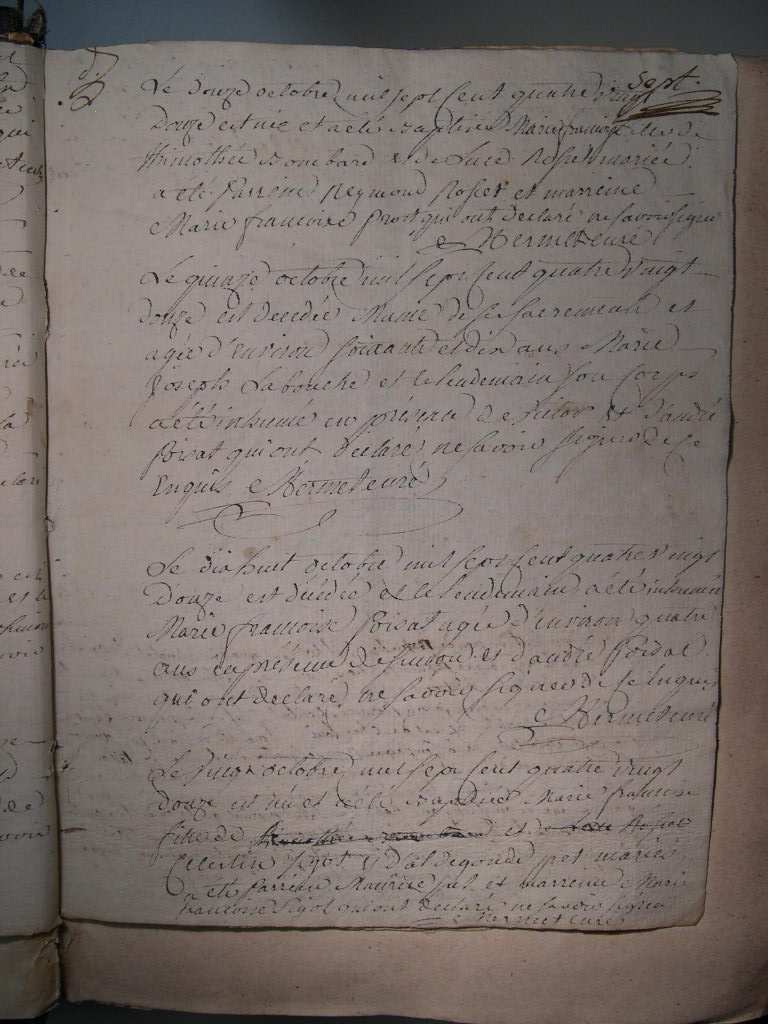 sept.
Le douze octobre mil sept cent quatre vingt
Douze est née et a été baptisée Marie françoise de
thimothée Bombard et de Luce Rosset mariés
a été Parrein Reymond Rosset et marreine
Marie françoise prost qui ont declaré ne savoir signer
Hermet curé
Le quinze octobre mil sept cent quatre vingt
douze est decedée Munie de sts sacremens et
agée d'environ soixante et dix ans Marie
Joseph Labouche et le lendemain son corps
a été inhumé en présence de et d'andré
foisat qui ont declaré ne savoir signer de ce
Enquis Hermet curé
Le dix huit octobre mil sept cent quatre vingt
Douze est décédée et le lendemain a été inhumée
Marie françoise foisat agée d'environ quatre
ans en présence de simon et d'andré foisat
qui ont declaré ne savoir signer de ce Enquis
Hermet curé
Le octobre mil sept cent quatre vingt
douze est né et a été baptisée Marie françoise
fille de thimothée Bombard et de Luce Rosset
Celestin d'aldegonde mariés
a été Parrein Maurice et marreine Marie
francoise qui ont declaré ne savoir signer
Hermet curé